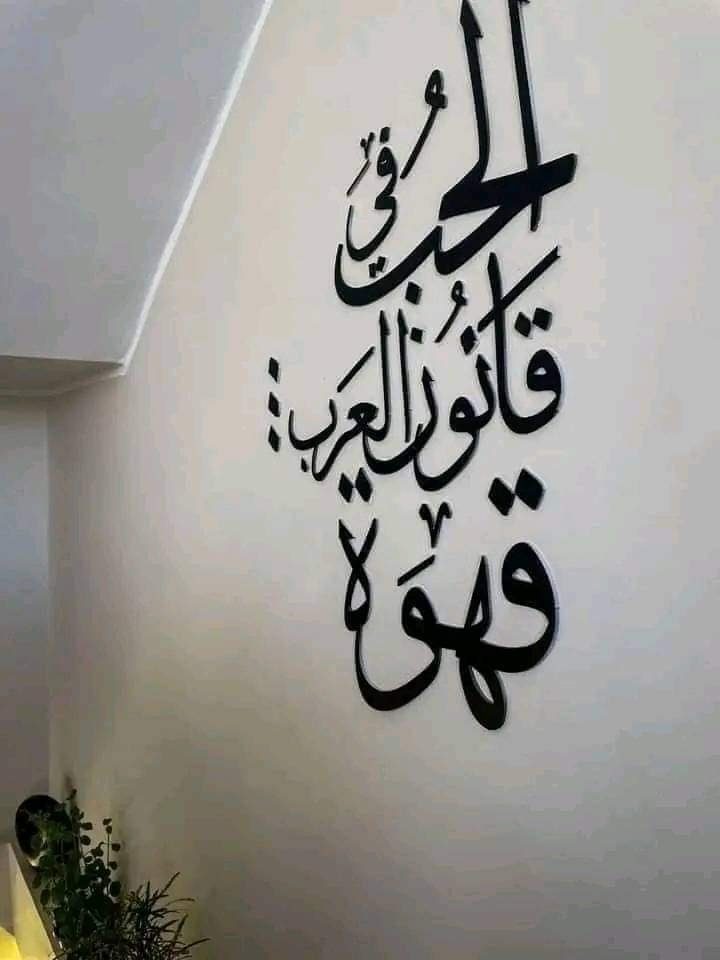 الحب في
قانون العرب :
قهوة